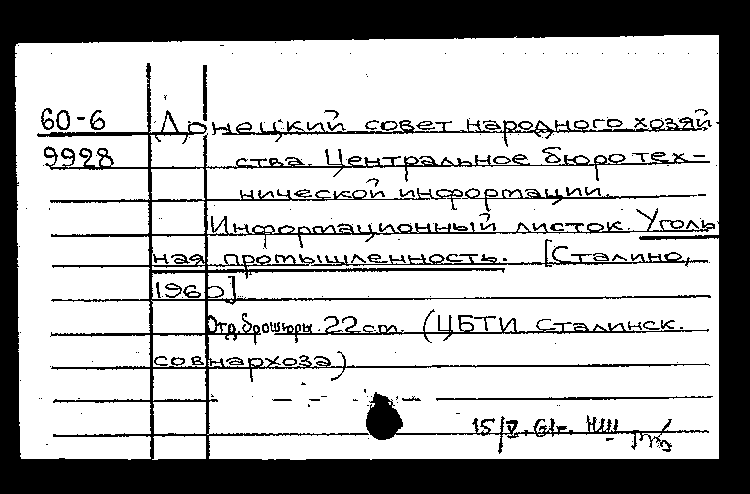 60-6 Донецкий совет народного хозяй-
9928 ства. Центральное бюро тех-
нической информации.
Информационный листок. Уголь
ная промышленность. [Сталино,
1960]
Отд. брошюры. 22 cm. (ЦБТИ Сталинск.
совнархоза)
15/V. 61г.